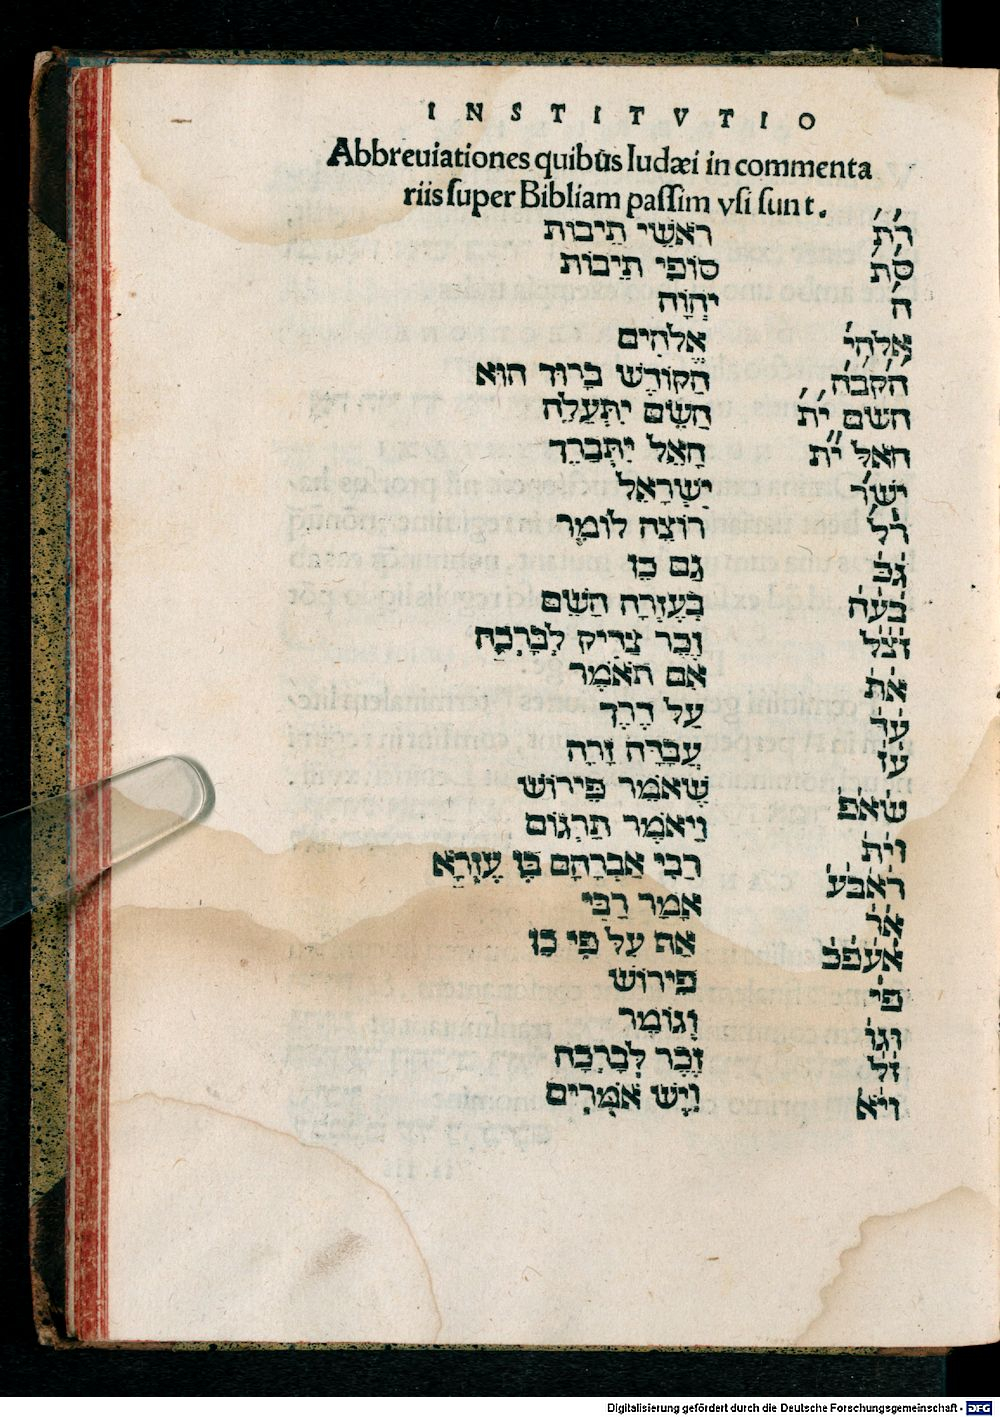 INSTITVTIO
Abbreuiationes quibūs Iudæi in commenta
riis super Bibliam passim vsi sunt.
ר״ת רֹאשֵׁי תֵיבוֹת
ס״ת סוֹפֵי תֵיבוֹת
ה יְהֹוָה
אלהי׳ אֱלֹהִים
הקבה הַקּוֹדֶשׁ בָּרוּךְ הוּא
השם ית׳ הַשֵּׁם יִתְעַלֶּה
האל ית׳ הָאֵל יִתְבָּרֵךְ
ישר׳ יִשְׂרָאֵל
רל רוֹצֶה לוֹמֶר
גכ גַּם כֵּן
בעה בְּעֶזְרָה הַשֵּׁם
וצל צַדִּיק לִבְרָכָה
את אִם תֹּאמַר
עד עַל דֶּרֶךְ
עז זָרָה
שאפ שֶׁאֹמֵר פֵּירוּשׁ
וית וַיֹּאמֶר תַּרְגּוּם
ראבע רַבִּי אַבְרָהָם בֶּן עֶזְרָא
אר אָמַר רַבִּי
אעפכ אַף עַל פִּי כֵן
פי׳ פֵּירוּשׁ
וגו׳ וְגוֹמֵר
זל זֵכֶר לִבְרָכָה
ויא וְיֵשׁ אֹמְרִים
Digitalisierung gefördert durch die Deutsche Forschungsgemeinschaft - DFG